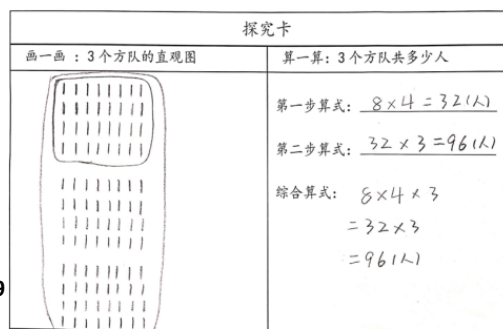 探究卡
画一画：3个方队的直观图
算一算：3个方队共多少人
第一步算式：8×4=32(人)
第二步算式：32×3=96(人)
综合算式：8×4×3
=32×3
=96(人)
9